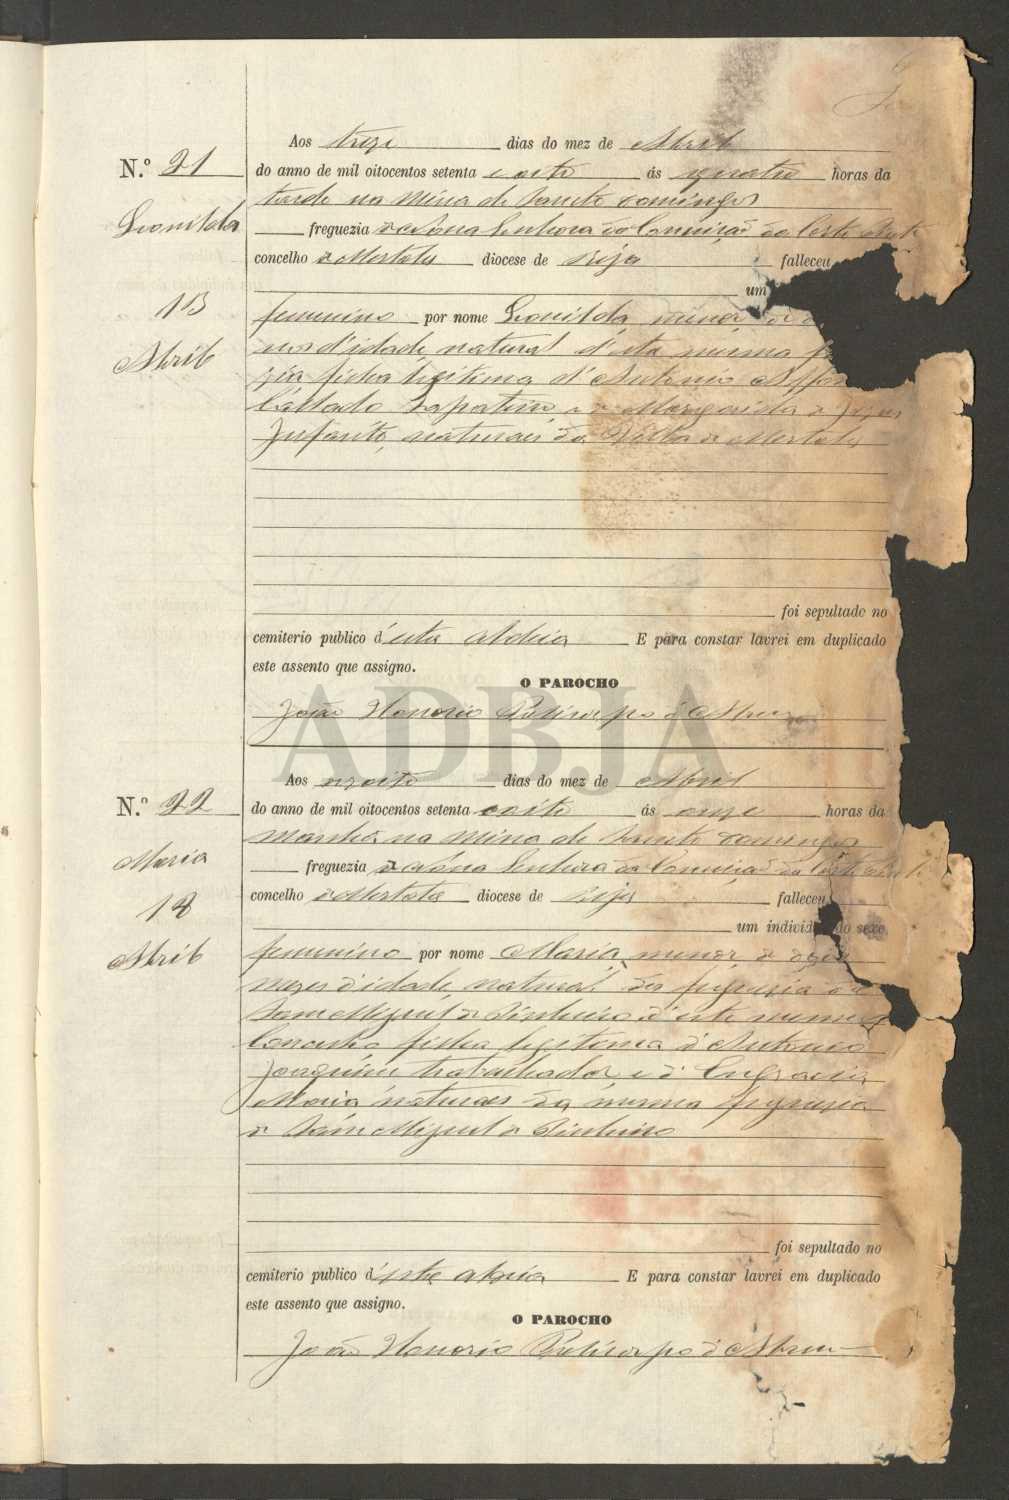 N.º 21
Leonilda
13
Abril
Aos treze dias do mez de Abril
do anno de mil oitocentos setenta e oito ás quatro horas da
tarde na Mina de Sancto Domingos
freguezia de Nossa Senhora da Conceição da Corte do
concelho de Mertola diocese de Beja falleceu
um
femenino por nome Leonilda menor de
d'idade, natural d'esta mesma
zia filha legitima d'Antonio
Callado Sapateiro e de Margarida de
Infante, naturais da Villa de Mertola
foi sepultado no
cemiterio publico d'esta Aldeia E para constar lavrei em duplicado
este assento que assigno.
O PAROCHO
João Honorio Policarpo d'Abreu
ADBJA
N.º 22
Maria
18
Abril
Aos dezoito dias do mez de Abril
do anno de mil oitocentos setenta e oito ás onze horas da
manhã na Mina de Sancto Domingos
freguezia de Nossa Senhora da Conceição da Corte do
concelho de Mertola diocese de Beja falleceu
um individ do sexo
femenino por nome Maria, menor de
mezes d'idade natural da freguezia de
Sam Miguel do Pinheiro d'este mesmo
Concelho filha legitima d'Antonio
Joaquim trabalhador e d'Engracia
Maria naturaes da mesma freguezia
de Sam Miguel do Pinheiro
foi sepultado no
cemiterio publico d'esta aldeia E para constar lavrei em duplicado
este assento que assigno.
O PAROCHO
João Honorio Policarpo d'Abreu